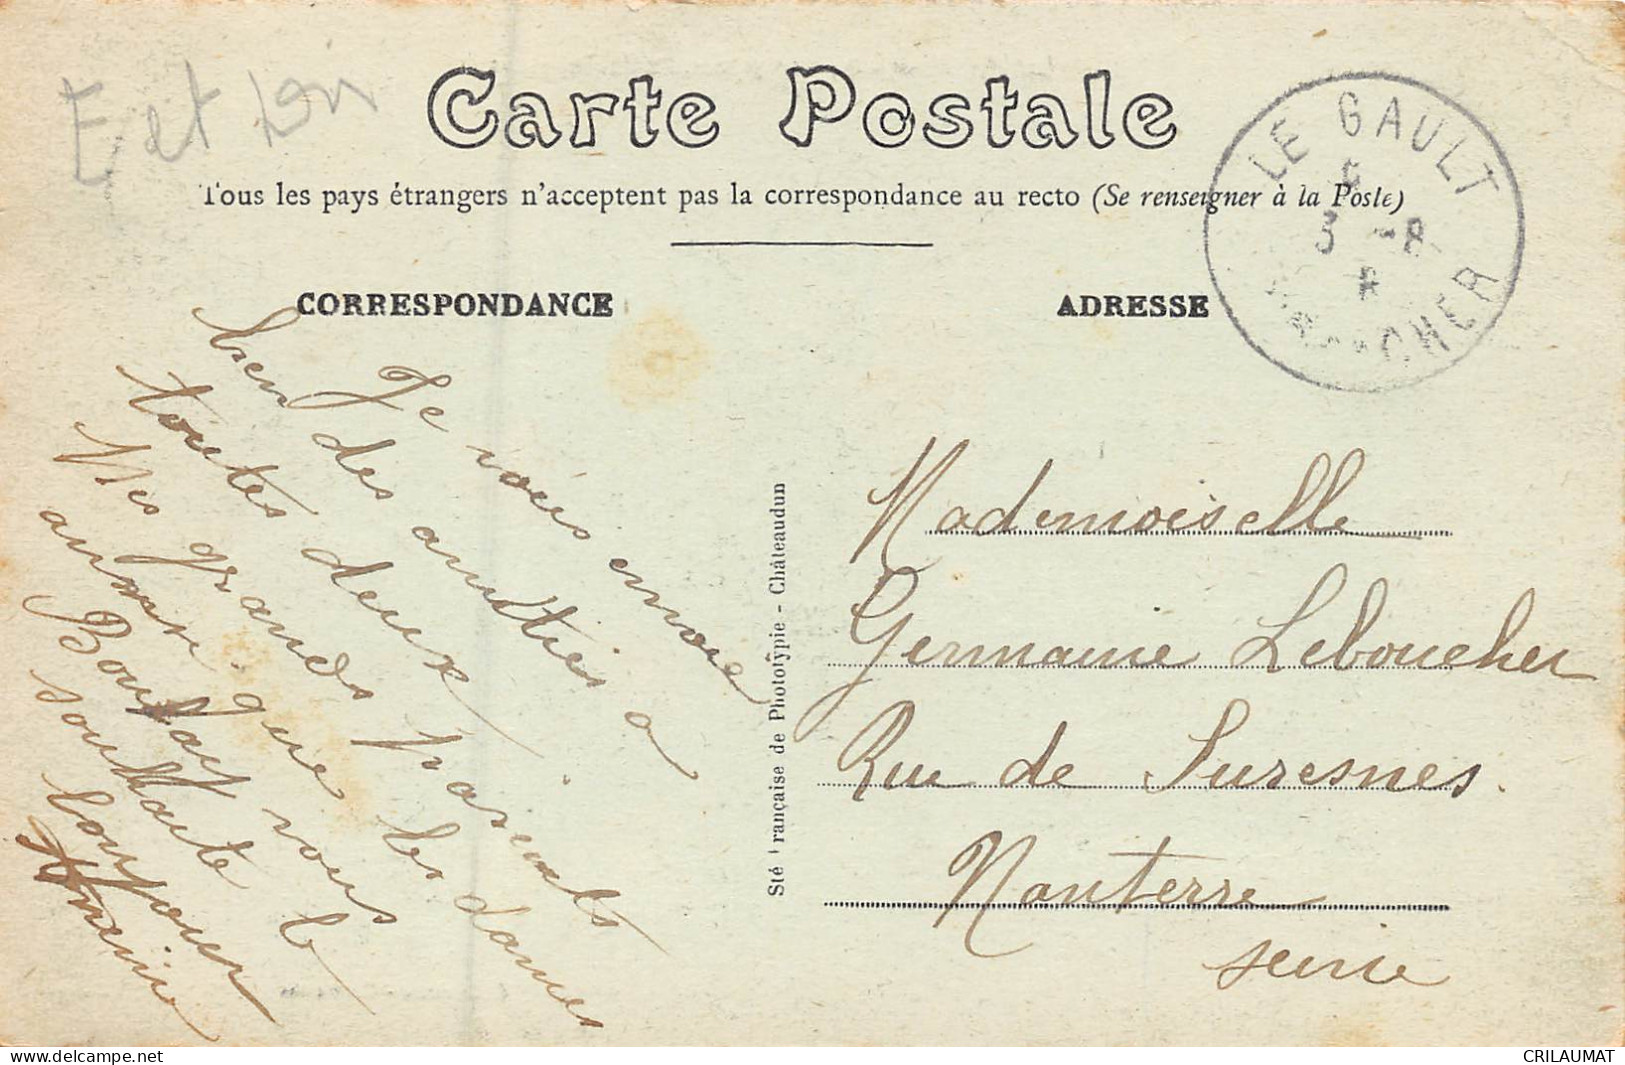 E et Loir
Carte Postale
Tous les pays étrangers n'acceptent pas la correspondance au recto (Se renseigner à la Poste)
LE GAULT
3 -8
CHER
CORRESPONDANCE
ADRESSE
Je vous envoie
bien des amitiés a
toutes deux.
Mes grands parents
ainsi que les dames
Boulay vous
souhaite le
bonjour
Sté Française de Phototypie - Châteaudun
Mademoiselle
Germaine Leboucher
Rue de Suresnes.
Nanterre
Seine
www.delcampe.net
CRILAUMAT